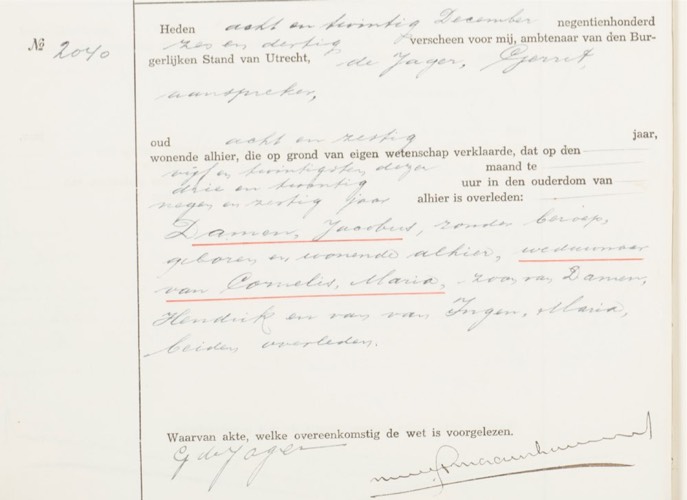 Nº 2040
Heden acht en twintig December negentienhonderd
zes en dertig verscheen voor mij, ambtenaar van den Bur-
gerlijken Stand van Utrecht, de Jager, Gerrit,
aanspreker,
oud acht en zestig jaar,
wonende alhier, die op grond van eigen wetenschap verklaarde, dat op den
vijf en twintigsten dezer maand te
drie en twintig uur in den ouderdom van
negen en zestig jaar alhier is overleden:
Damen, Jacobus, zonder beroep,
geboren en wonende alhier, weduwnaar
van Cornelis, Maria, zoon van Damen,
Hendrik en van van Ingen, Maria,
beiden overleden.
Waarvan akte, welke overeenkomstig de wet is voorgelezen.
G de Jager